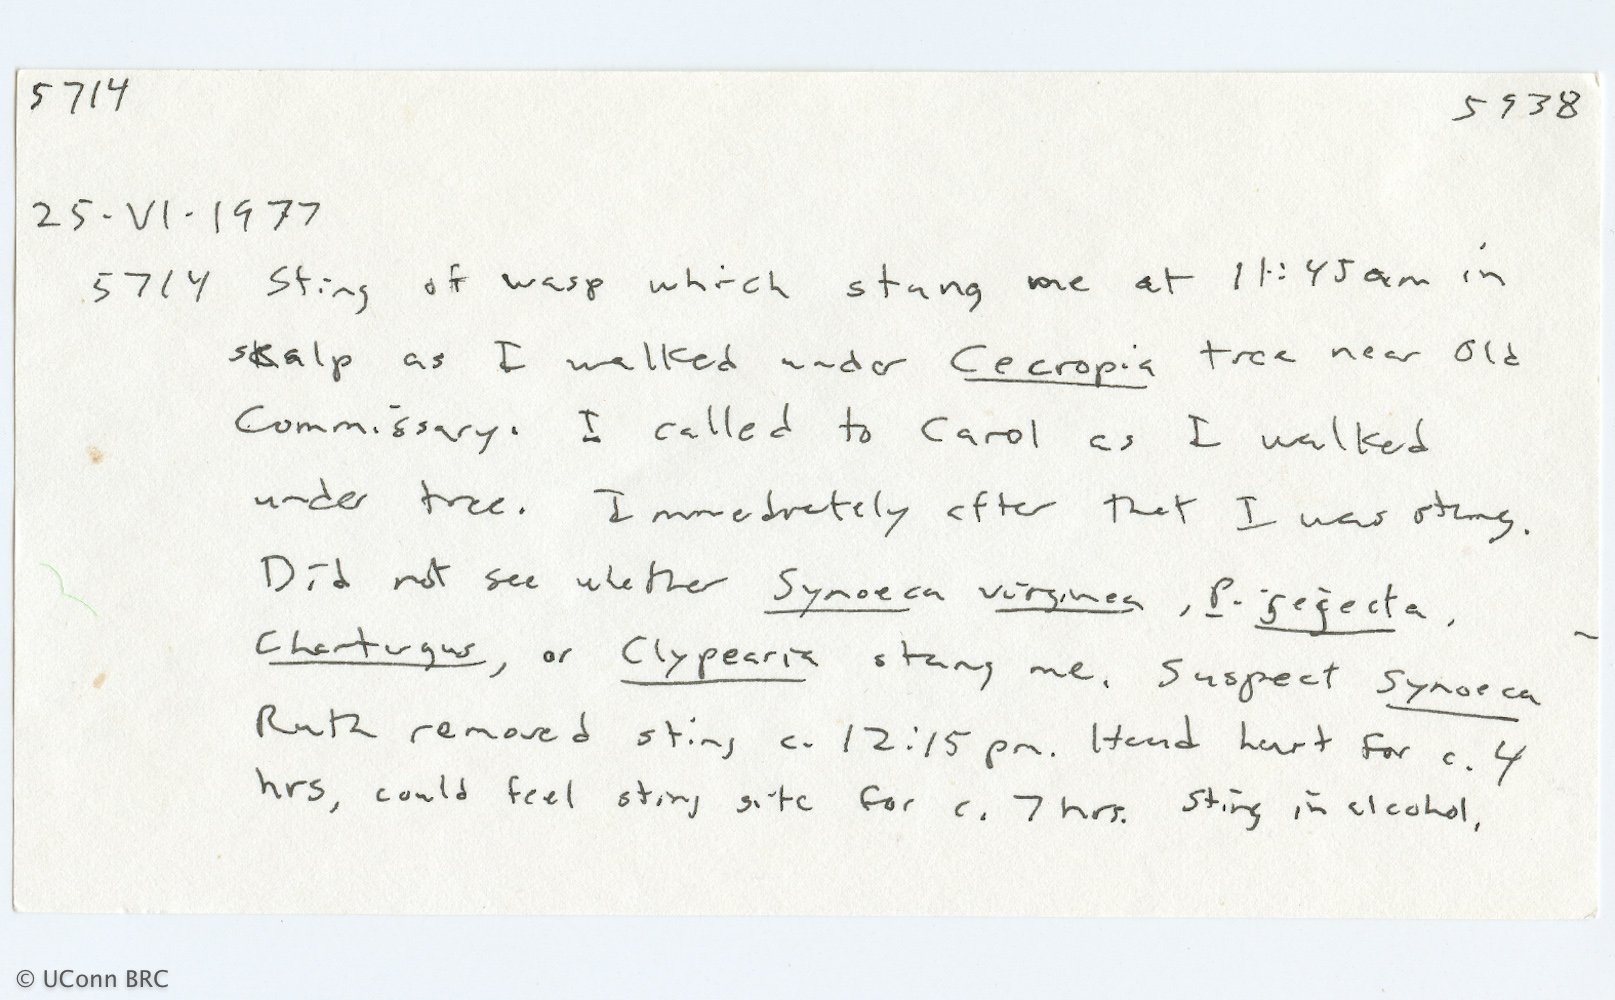 5714
5938
25-VI-1977
5714 Sting of wasp which stung me at 11:45am in
skalp as I walked under Cecropia tree near Old
Commissary. I called to Carol as I walked
under tree. Immediately after that I was stung.
Did not see whether Synoeca virginea, P. jejecta,
Charturgus, or Clypearia stung me. Suspect Synoeca
Ruth removed sting c. 12:15 pm. Head hurt for c. 4
hrs, could feel sting site for c. 7 hrs. Sting in alcohol.
© UConn BRC